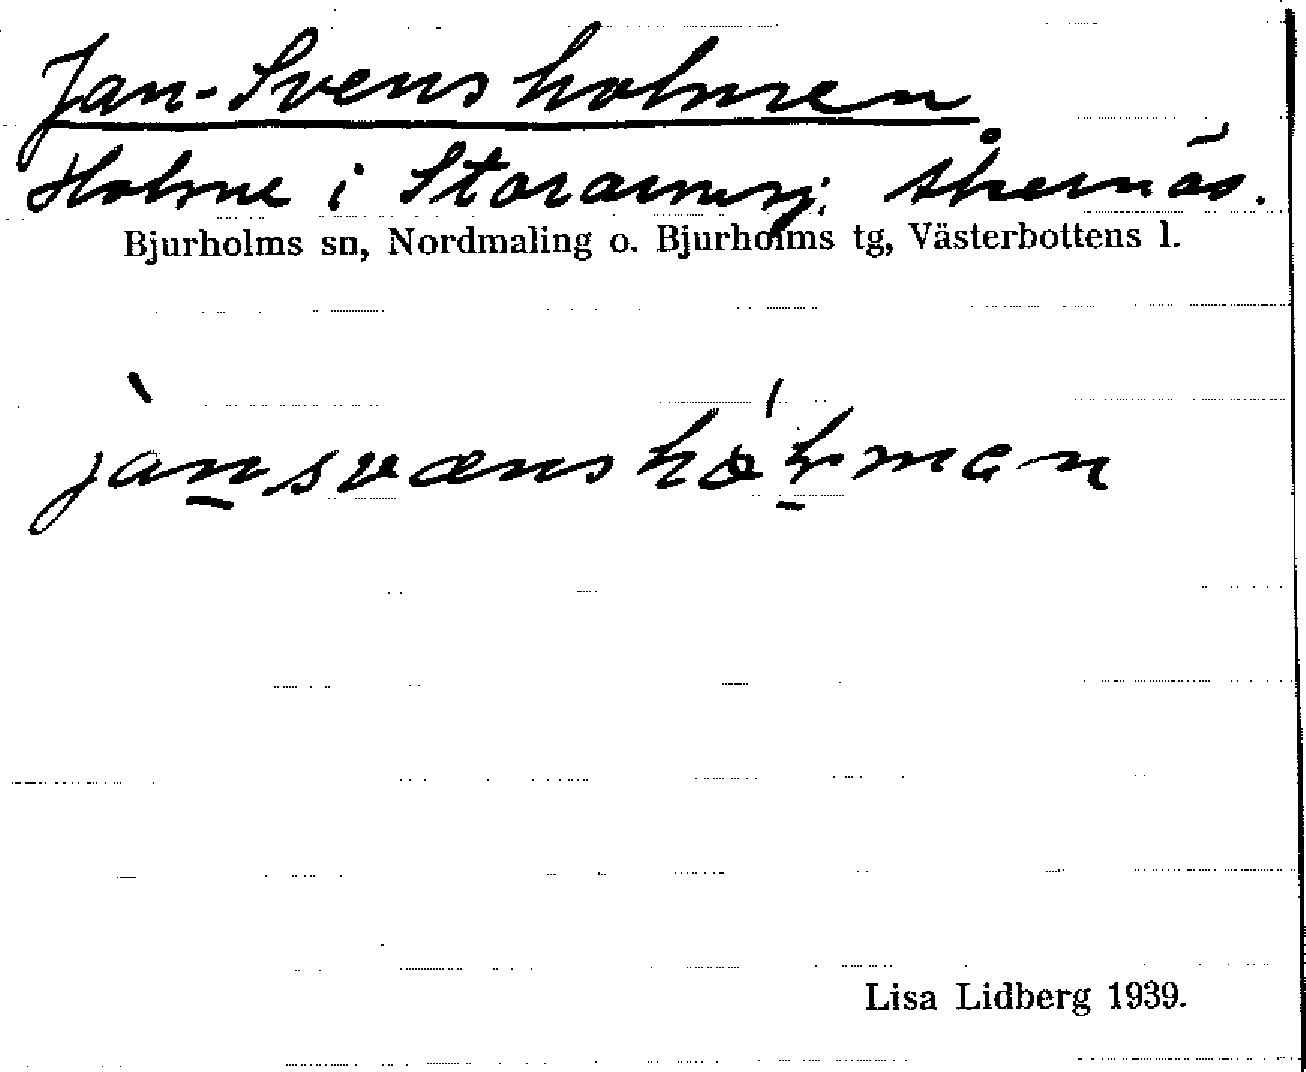 Jan-Svensholmen
Holme i Storarmsj. Åkernäs.
Bjurholms sn, Nordmaling o. Bjurholms tg, Västerbottens l.
Lisa Lidberg 1939.